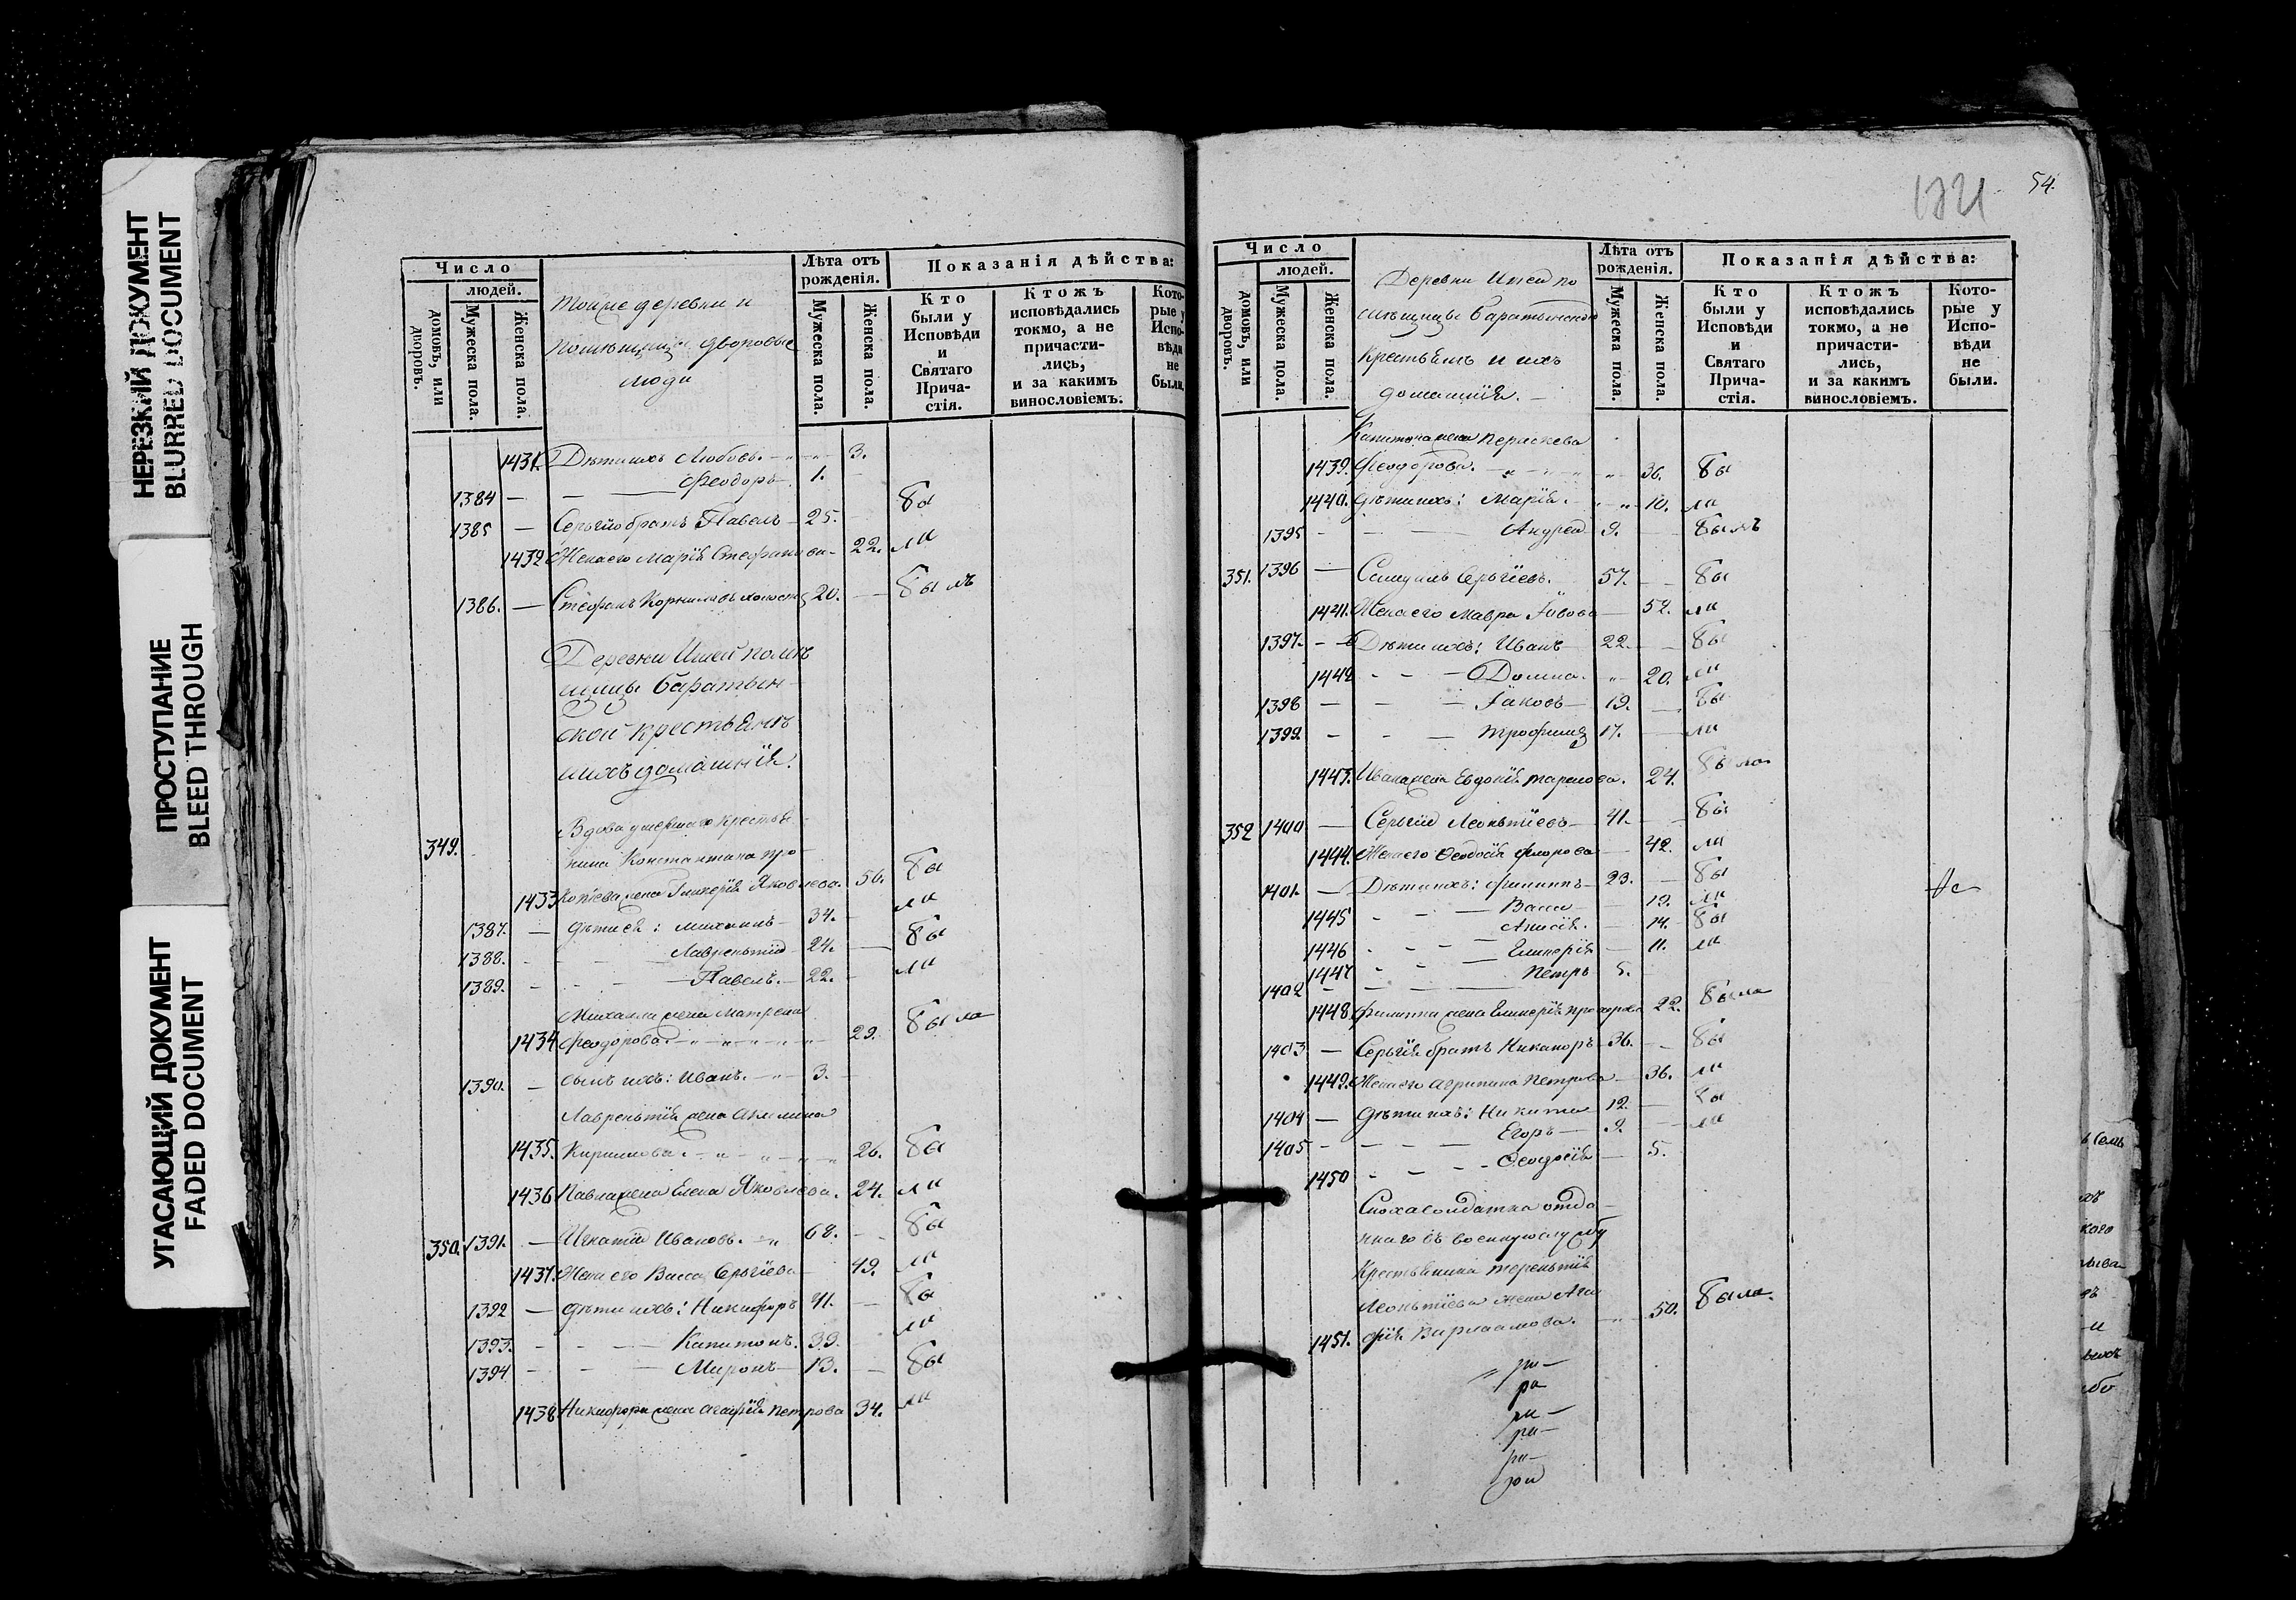 НЕРЕЗКИЙ ДОКУМЕНТ
BLURRED DOCUMENT
ПРОСТУПАНИЕ
BLEED THROUGH
УГАСАЮЩИЙ ДОКУМЕНТ
FADED DOCUMENT
Число
людей.
домовъ, или дворовъ.
Мужеска пола.
Женска пола.
Тойже деревни и
помѣщицы дворовые
люди
Лѣта отъ рожденія.
Мужеска пола.
Женска пола.
Показанія дѣйства:
Кто были у Исповѣди и Святаго Причастія.
Ктожъ исповѣдались токмо, а не причастились, и за какимъ винословіемъ.
Которые у Исповѣди не были.
1431. Дѣти ихъ Любовь. 3.
1384 — Феодоръ 1.
1385 — Сергія братъ Павелъ 25. бы
1432 Жена его Марія Стефанова 22. ли
1386. — Стефанъ Корниловъ холостъ 20. былъ
Деревни Ишей помѣ
щицы Баратын
ской крестьянъ
и ихъ домашнія.
349. Вдова умершаго крестья
нина Константина Про
1433 копіева жена Гликерія Яковлева. 56. бы
1387. — дѣти ея: Михаилъ 34. ли
1388. Лаврентій 24. бы
1389. Павелъ. 22. ли
Михаила жена Матрена
1434 Феодорова 29. была
1390. — сынъ ихъ: Иванъ. 3.
Лаврентія жена Акилина
1435. Кирилова. 26. бы
1436 Павла жена Елена Яковлева. 24. ли
350. 1391. — Игнатій Ивановъ. 68. бы
1437. Жена его Васса Сергіева 49. ли
1392 — дѣти ихъ: Никифоръ 41. бы
1393. Капитонъ. 39. ли
1394 Миронъ 13. бы
1438 Никифора жена Агафія Петрова 34. ли
54.
Число
людей.
домовъ, или дворовъ.
Мужеска пола.
Женска пола.
Деревни Ишей по
мѣщицы Баратынской
крестьянъ и ихъ
домашнія.
Лѣта отъ рожденія.
Мужеска пола.
Женска пола.
Показанія дѣйства:
Кто были у Исповѣди и Святаго Причастія.
Ктожъ исповѣдались токмо, а не причастились, и за какимъ винословіемъ.
Которые у Исповѣди не были.
Капитона жена Параскева
1439. Феодорова. 36. бы
1440. дѣти ихъ: Марія. 10. ли
1395 Андрей 9. былъ
351. 1396 — Самуилъ Сергіевъ. 57. бы
1441. Жена его Мавра Іовова 52. ли
1397. Дѣти ихъ: Иванъ 22. бы
1442 Домна. 20. ли
1398 Іаковъ 19. бы
1399 Трофимъ 17. ли
1443. Ивана жена Евдокія Тарасова. 24. была
352 1400 — Сергій Леонтіевъ 41. бы
1444. Жена его Феодосія Флорова 42. ли
1401. — Дѣти ихъ: Филиппъ 23. бы
1445 Васса 19. ли
1446 Анисія. 14. бы
1447 Гликерія 11. ли
1402 Петръ 5.
1448. Филиппа жена Гликерія Прохорова 22. была
1403 — Сергія братъ Никаноръ 36. бы
1449. Жена его Агрипина Петрова 36. ли
1404 — дѣти ихъ: Никита 12. бы
1405 Егоръ 9. ли
1450 Феодосія 5.
Сноха солдатка отда
ннаго въ военную службу
крестьянина Терентія
Леонтіева жена Ага
1451. фія Варлаамова. 50. была.